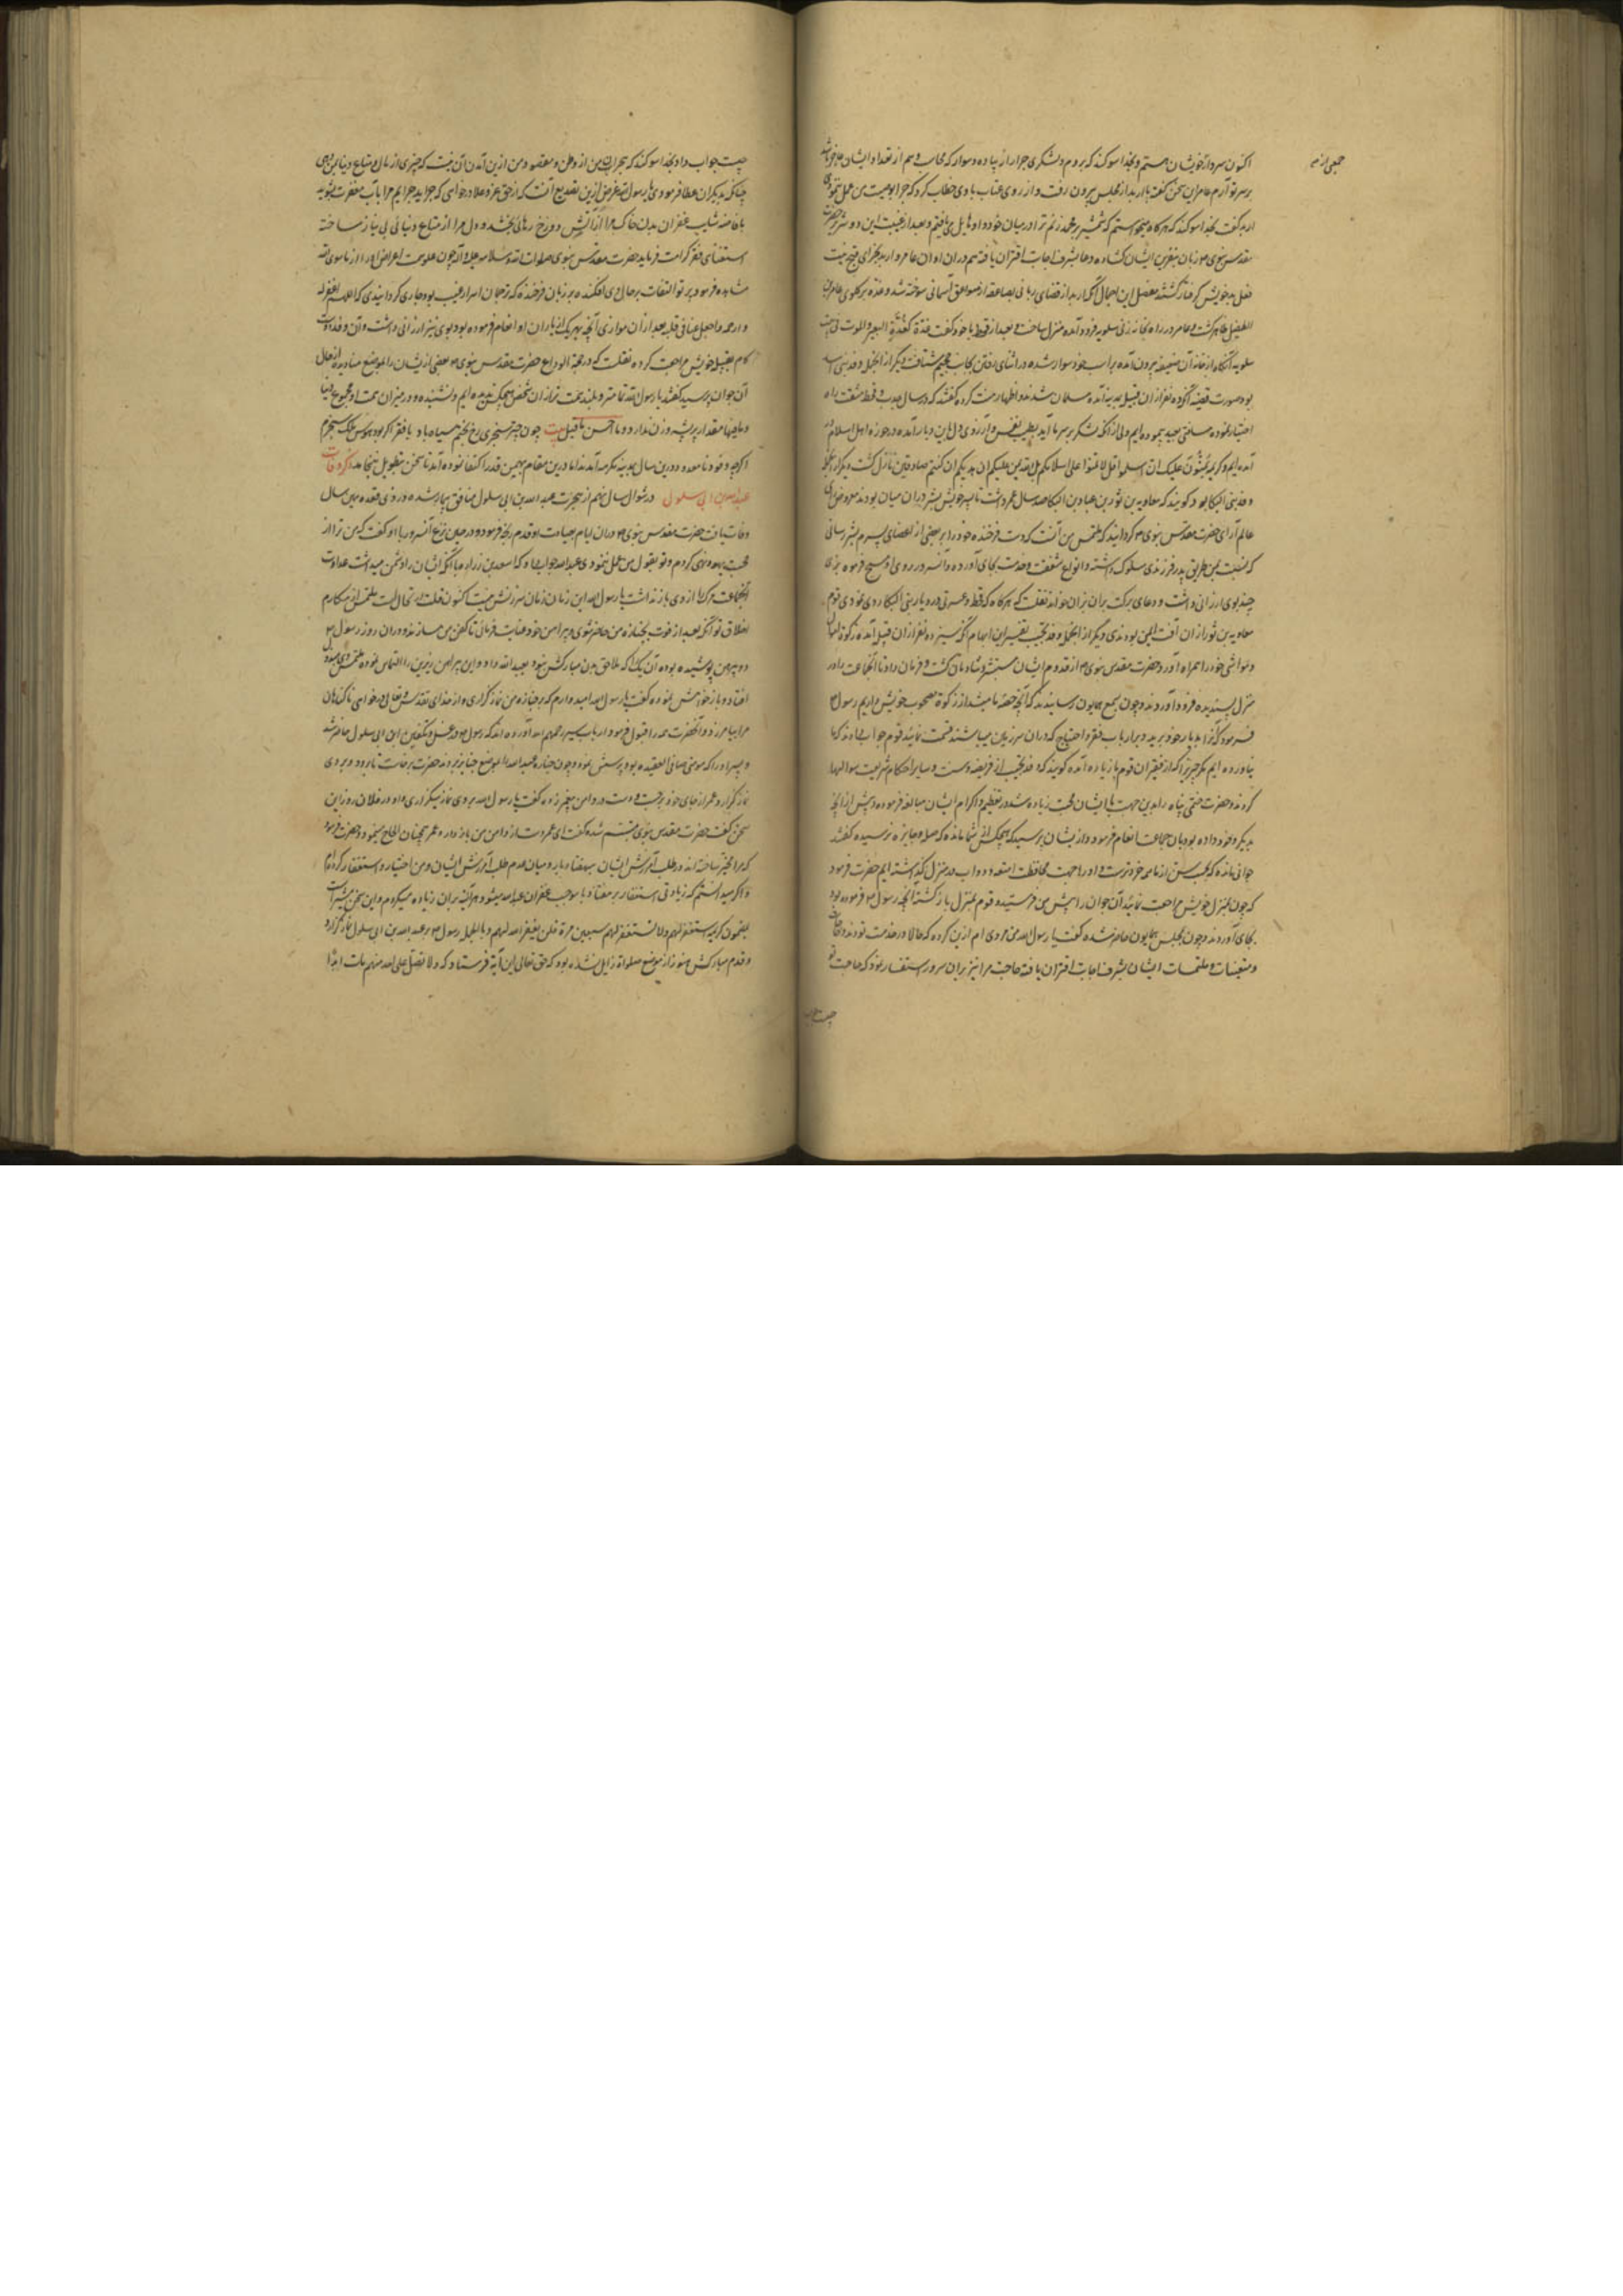 جمعی از بنی
اکنون سردار خویشان هستم و بخدا سوکند که بروم و لشکری جرار از پیاده و سوار که محاسب وهم از تعداد ایشان عاجز
بر سر تو آرم عامر این سخن گفته با اربد از مجلس بیرون رفت و از روی عتاب با وی خطاب کرد که چرا بوصیت من عمل ننمودی
اربد گفت بخدا سوکند که هرکاه میخواستم که شمشیر بر محمد زنم ترا در میان خود و او حایل می یافتم و بعد از غیبت این دو شریر حضرت
مقدس نبوی م زبان بنفرین ایشان کشاده دعا بشرف اجابت اقتران یافته هم دران اوان عامر و اربد بجزای قبح نیت
فعل بد خویش گرفتار کشتند مفصل این اجمال آنکه اربد از قضای ربانی بصاعقه از صواعق آسمانی سوخته شد و غده بر کلوی عامر بن
الطفیل ظاهر کشت و عامر در راه بخانه زنی سلولیه فرود آمده منزل ساخت و بعد از قوط با خود گفت غدة کغدة البعیر و الموت فی بیت
سلولیه آنکاه از خانه آن ضعیفه بیرون آمده بر اسب خود سوار شده در اثنای رفتن بجانب جحیم شتافت و دیکر از انجمله وفد بنی اسد
بود صورت قضیه آنکه ده نفر از ان قبیله بمدینه آمده مسلمان شدند و اظهار منت کرده گفتند که در سال جدب و قحط مشقت راه
اختیار نموده مسافتی بعید پیموده ایم و بی از آنکه لشکر بر سر ما آید بطیب نفس و آرزوی دل باین دیار آمده در حوزه اهل اسلام در
آمده ایم و کریمه یمنون علیک ان اسلموا قل لا تمنوا علی اسلامکم بل الله یمن علیکم ان هدیکم ان کنتم صادقین نازل کشت و دیکر از انجمله
وفد بنی البکا بود و کویند که معاویه بن ثور بن عباد بن البکا صد سال عمر داشت با پسر خویش بشر دران میان بودند معروض رای
عالم آرای حضرت مقدس نبوی م کردانید که ملتمس من آنست که دست فرخنده خود را بر بعضی از اعضای پسرم بشر رسانی
که نسبت بمن طریق پدر فرزندی سلوک داشته و انواع شفقت و خدمت بجای آورده و آنسرور دست بر روی او مسح فرموده بزی
چند بوی ارزانی داشت و دعای برکت بران بزان خواند نقلست که هرکاه که قحط و عسرتی در دیار بنی البکا روی نمودی قوم
معاویه بن ثور از ان آفت ایمن بودندی و دیکر از انجمله وفد تجیب تفسیر این ابهام آنکه سیزده نفر از ان قبیله آمده زکوة اموال
و مواشی خود را همراه آوردند حضرت مقدس نبوی م از قدوم ایشان مستبشر و شادمان کشت و فرمان داد تا آنجماعت را در
منزل پسندیده فرود آوردند و چون بسمع همایون رسانیدند که آنچه حصه ما میشد از زکوة مصحوب خویش داریم رسول م
فرمود که آنرا بدیار خود برید و بر ارباب فقر و احتیاج که دران سرزمین میباشند قسمت نمایند قوم جواب دادند که ما
نیاورده ایم مکر چیزی را که از فقیران قوم ما زیاده آمده کویند که وفد تجیب از فریضه و سنت و سایر احکام شریعت سوالها
کردند و حضرت ختمی پناه را بدین جهت با ایشان محبت زیاده شد و در تعظیم و اکرام ایشان مبالغه فرموده و بیش از آنچه
بدیکر وفود داده بود بان جماعت انعام فرمود و از ایشان پرسید که هیچکس از شما مانده که صله و جایزه نرسیده گفتند
جوانی مانده که بحسب سن از ما همه خردترست و او را جهت محافظت امتعه و دواب در منزل گذاشته ایم حضرت فرمود
که چون بمنزل خویش مراجعت نمائید آن جوان را پیش من فرستید و قوم بمنزل بازکشته آنچه رسول م فرموده بود
بجای آوردند و چون بمجلس همایون حاضر شده گفت یا رسول الله من مردی ام ازین کرده که حالا در خدمت تو بودند و حاجات
و متمنیات و ملتمسات ایشان بشرف اجابت اقتران یافته حاجت مرا نیز بران سرور استفسار نمود که حاجت تو
چیست جواب
چیست جواب داد بخدا سوکند که هجران من از وطن و مقصود من ازین آمدن آن نیست که چیزی از مال و متاع دنیا بمن دهی
چنانکه بدیکران عطا فرمودی یا رسول الله غرض ازین تصدیع آنست که از حق عز و علا درخواهی که جراید جرایم مرا بآب مغفرت بشوید
بافاضه شآبیب غفران بدن خاک مرا از آتش دوزخ رهائی بخشد و دل مرا از متاع دنیائی بی نیاز ساخته
استغنای فقر کرامت فرماید حضرت مقدس نبوی صلوات الله و سلامه علیه و آله چون علو همت اعراض او را از ما سوی الله
مشاهده فرمود پرتو التفات بر حال وی افکنده بر زبان فرخنده که ترجمان اسرار غیب بود جاری کردانیدی که اللهم اغفر له
و ارحمه و اجعل غناه فی قلبه بعد ازان موازی آنچه بهر یک از یاران او انعام فرموده بود بوی نیز ارزانی داشت و آن وفد دوست
کام بقبیله خویش مراجعت کرده نقلست که در حجة الوداع حضرت مقدس نبوی م بعضی از ایشان را بموضع منا دید از حال
آن جوان پرسید گفتند یا رسول الله قانع تر و بلند همت تر از ان شخص هیچکس ندیده ایم و نشنیده و در میزان همت او مجموع دنیا
و مافیها مقدار پر پشه وزن ندارد و ما احسن ما قیل بیت چون چتر سنجری رخ بختم سیاه باد با فقر اکر بود هوس ملک سنجرم
اکرچه وفود نامعدود درین سال بمدینه مکرمه آمدند اما درین مقام بهمین قدر اکتفا نموده آمد تا سخن بتطویل نینجامد ذکر وفات
عبدالله بن ابی سلول در شوال سال نهم از هجرت عبدالله بن ابی سلول منافق بیمار شده در ذی قعده همین سال
وفات یافت حضرت مقدس نبوی م دران ایام بعیادت او قدم رنجه فرمود و در حین نزع آنسرور با او گفت که من ترا از
محبت یهود نهی کردم و تو بقول من عمل ننمودی عبدالله جواب داد که اسعد بن زراره با آنکه ایشان را دشمن میداشت عداوت
آنجماعت مرک را از وی باز نداشت یا رسول الله این زمان زمان سرزنش نیست اکنون وقت ارتحالست ملتمس از مکارم
اخلاق تو آنکه بعد از فوت بجنازه من حاضر شوی و پیراهن خود عنایت فرمائی تا کفن من سازند و دران روز رسول م
دو پیرهن پوشیده بوده آن یک را که ملاصق بدن مبارکش نبود بعبدالله داد و این پیراهن زیرین را التماس نموده ملتمس وی مبذول
افتاد و باز خواهش نموده گفت یا رسول الله امیدوارم که بر جنازه من نماز گزاری و از خدای تقدس و تعالی درخواهی تا کناهان
مرا بیامرزد و آنحضرت همه را قبول فرمود و ارباب سیر رحمهم الله آورده اند که رسول م در غسل و تکفین ابن ابی سلول حاضر شد
و پسر او را که مومنی صافی العقیده بود پرسش نمود و چون جنازه عبدالله را بموضع جنایز بردند حضرت برخاست تا برود و بر وی
نماز گزارد و عمر از جای خود برجست و دست در دامن پیغمبر زده گفت یا رسول الله بر وی نماز میگزاری و او در فلان روز این
سخن گفت حضرت مقدس نبوی متبسم شده گفت ای عمر دست از دامن من باز دار و عمر همچنان الحاح مینمود و حضرت فرمود
که مرا مخیر ساخته اند در طلب آمرزش ایشان بهفتاد بار و میان عدم طلب آمرزش ایشان و من اختیار استغفار کرده ام
و اکر میدانستم که زیادتی استغفار بر هفتاد بار موجب غفران عبدالله میشود هر آئینه بران زیاده میکردم و این سخن مشیرست
بمضمون کریمه استغفر لهم او لا تستغفر لهم ان تستغفر لهم سبعین مرة فلن یغفر الله لهم و بالجمله رسول م بر عبدالله بن ابی سلول نماز گزارد
و قدم مبارکش هنوز از موضع صلوة زایل نشده بود که حق تعالی این آیة فرستاد که و لا تصل علی احد منهم مات ابدا